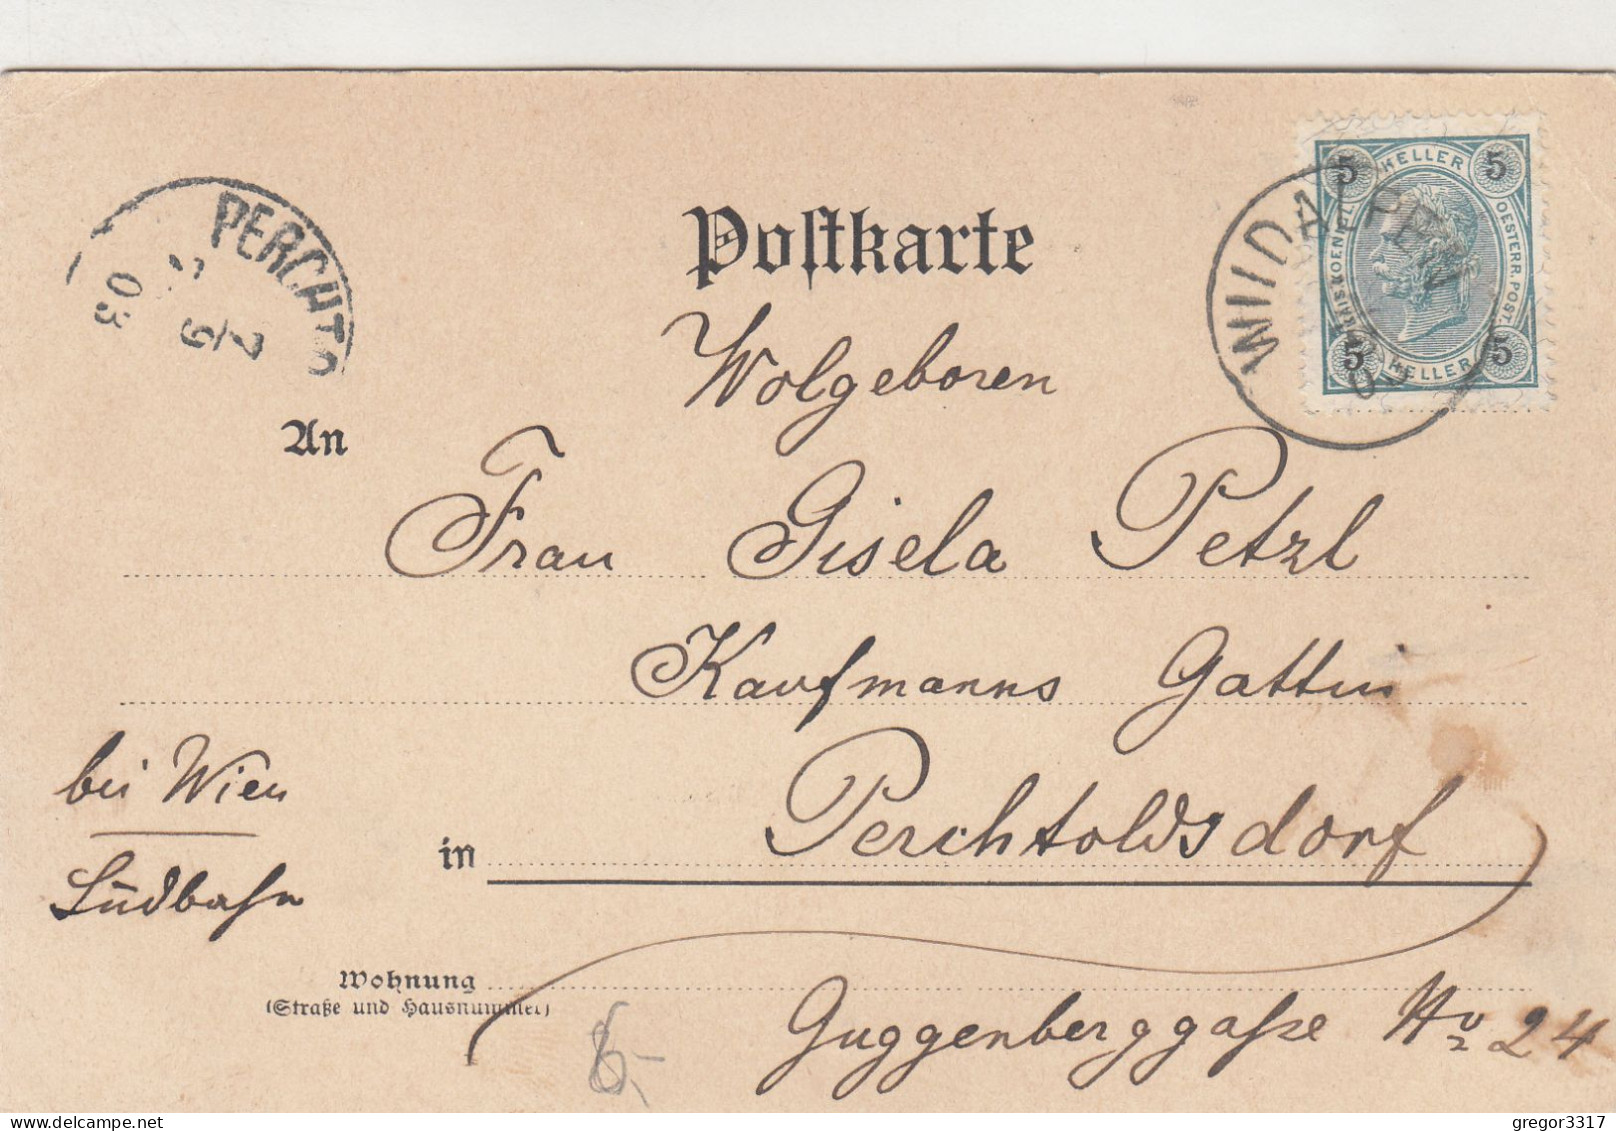 PERCHTO
2 9
03
Postkarte
5 HELLER 5
OESTERR. POST.
5 HELLER 5
Wolgeboren
An
Frau Gisela Petzl
Kaufmanns Gattin
bei Wien
Südbahn
in Perchtoldsdorf
Wohnung
(Straße und Hausnummer)
Guggenberggaße No 24
gregor3317